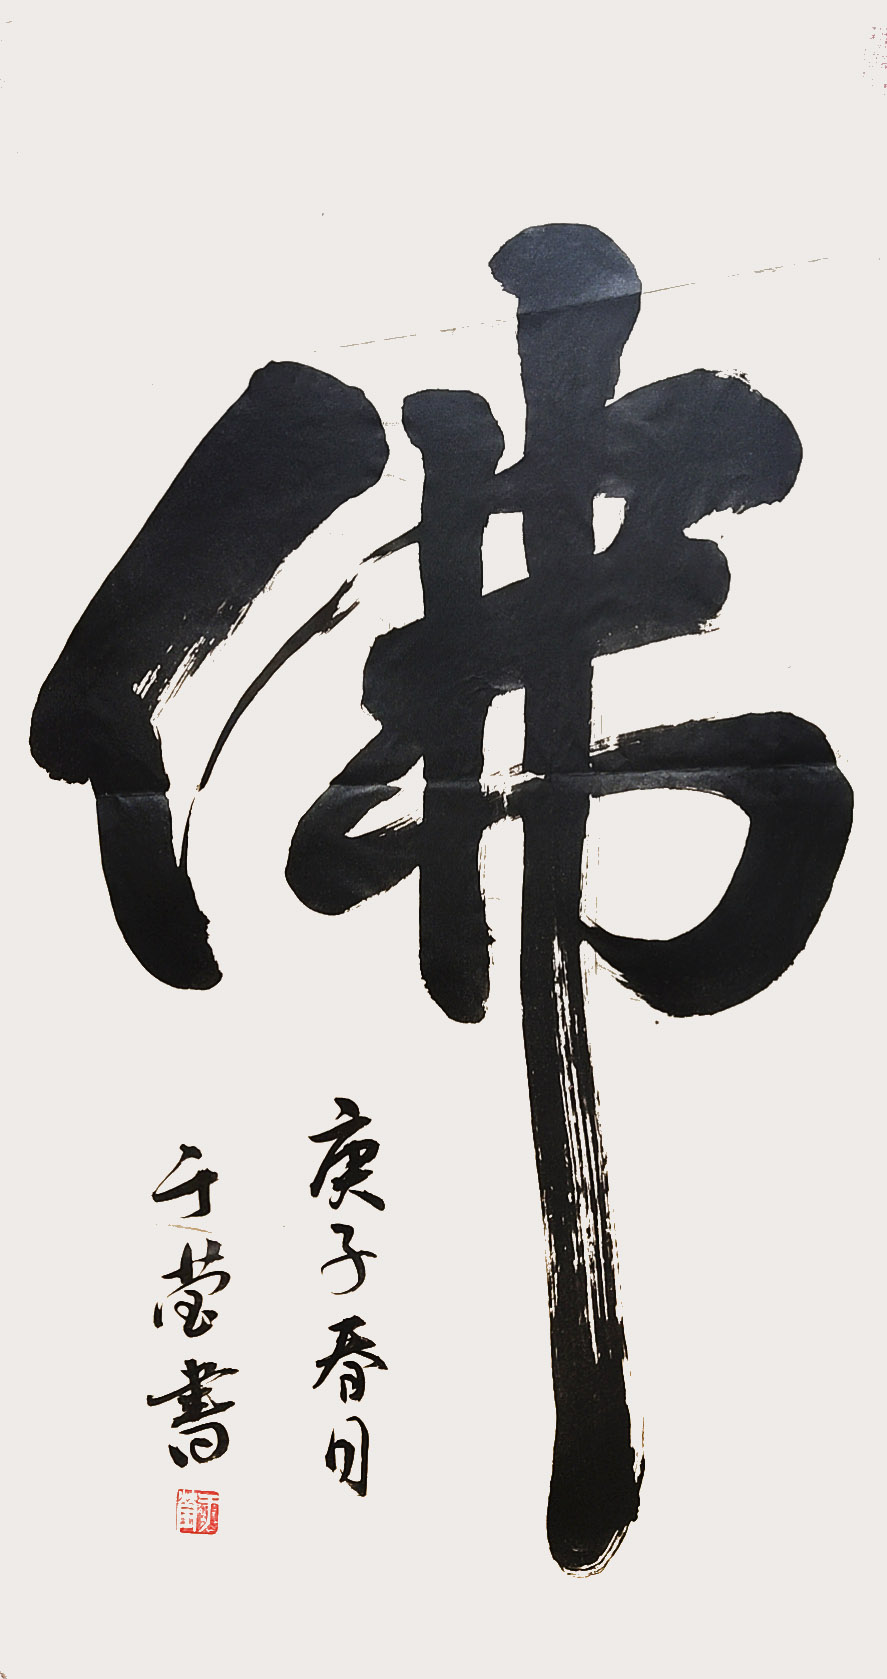 佛
庚子春月
于莹書